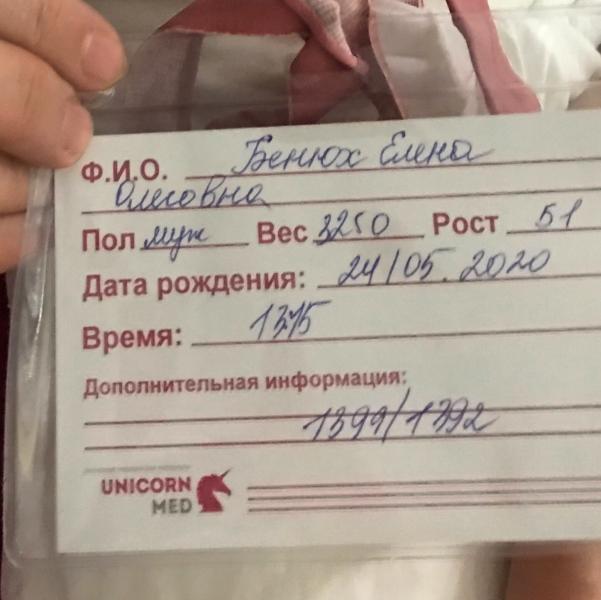 Ф.И.О. Бенюх Елена
Олеговна
Пол муж Вес 3250 Рост 51
Дата рождения: 24/05.2020
Время: 1345
Дополнительная информация:
1399/1392
UNICORN
MED